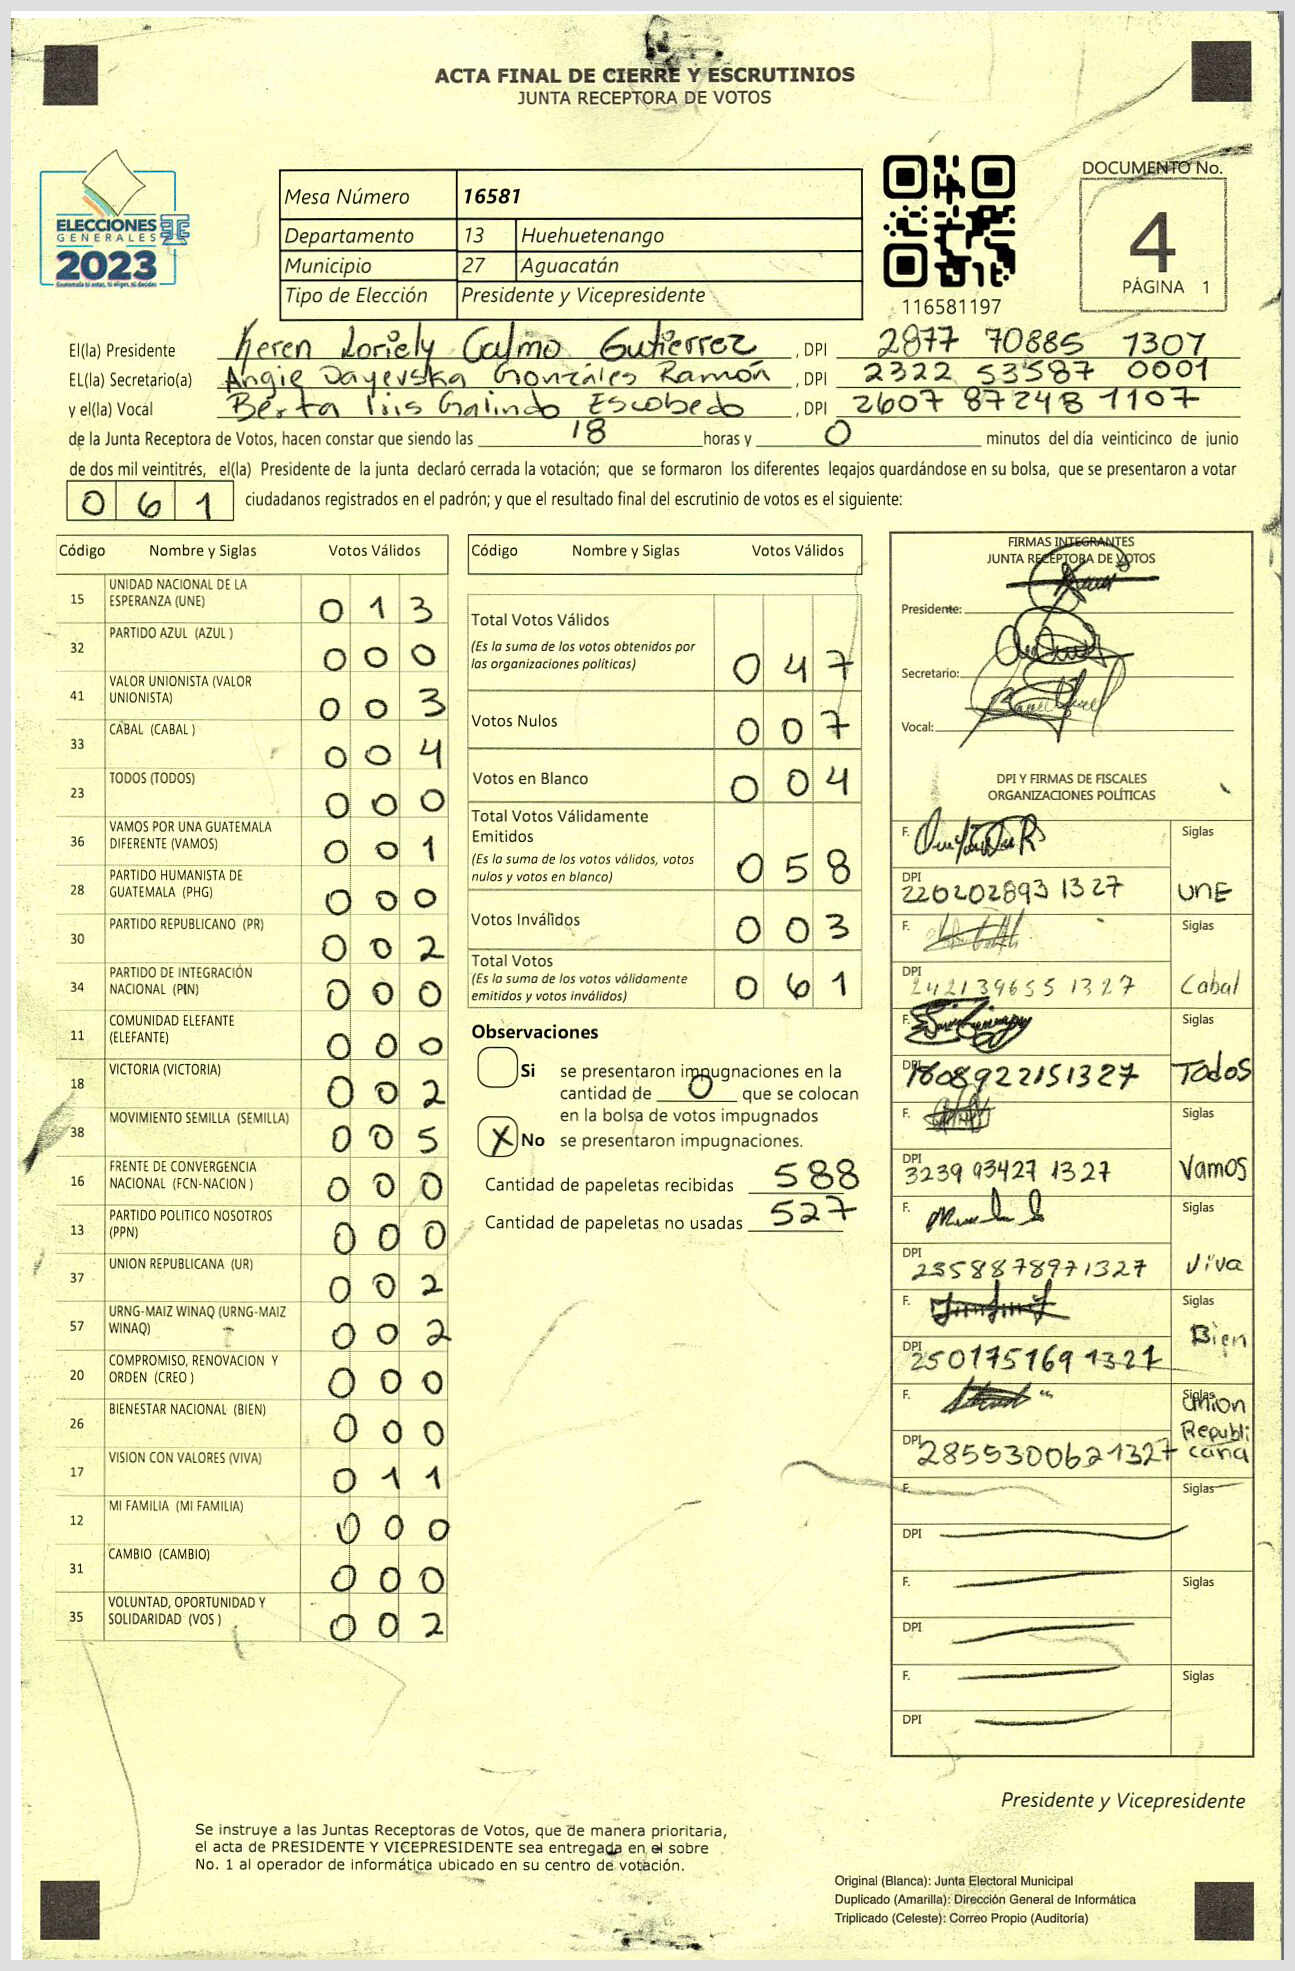 ACTA FINAL DE CIERRE Y ESCRUTINIOS
JUNTA RECEPTORA DE VOTOS
ELECCIONES
GENERALES
2023
Mesa Número 16581
Departamento 13 Huehuetenango
Municipio 27 Aguacatán
Tipo de Elección Presidente y Vicepresidente
116581197
DOCUMENTO No.
4
PÁGINA 1
El(la) Presidente Keren Loriely Calmo Gutierrez , DPI 2877 70885 1307
EL(la) Secretario(a) Angie Dayevska Gonzáles Ramón , DPI 2322 53587 0001
y el(la) Vocal Berta Luis Galindo Escobedo , DPI 2607 87248 1107
de la Junta Receptora de Votos, hacen constar que siendo las 18 horas y 0 minutos del día veinticinco de junio
de dos mil veintitrés, el(la) Presidente de la junta declaró cerrada la votación; que se formaron los diferentes legajos quardándose en su bolsa, que se presentaron a votar
0 6 1 ciudadanos registrados en el padrón; y que el resultado final del escrutinio de votos es el siguiente:
Código Nombre y Siglas Votos Válidos
15 UNIDAD NACIONAL DE LA
ESPERANZA (UNE) 0 1 3
32 PARTIDO AZUL (AZUL ) 0 0 0
41 VALOR UNIONISTA (VALOR
UNIONISTA) 0 0 3
33 CABAL (CABAL ) 0 0 4
23 TODOS (TODOS) 0 0 0
36 VAMOS POR UNA GUATEMALA
DIFERENTE (VAMOS) 0 0 1
28 PARTIDO HUMANISTA DE
GUATEMALA (PHG) 0 0 0
30 PARTIDO REPUBLICANO (PR) 0 0 2
34 PARTIDO DE INTEGRACIÓN
NACIONAL (PIN) 0 0 0
11 COMUNIDAD ELEFANTE
(ELEFANTE) 0 0 0
18 VICTORIA (VICTORIA) 0 0 2
38 MOVIMIENTO SEMILLA (SEMILLA) 0 0 5
16 FRENTE DE CONVERGENCIA
NACIONAL (FCN-NACION ) 0 0 0
13 PARTIDO POLITICO NOSOTROS
(PPN) 0 0 0
37 UNION REPUBLICANA (UR) 0 0 2
57 URNG-MAIZ WINAQ (URNG-MAIZ
WINAQ) 0 0 2
20 COMPROMISO, RENOVACION Y
ORDEN (CREO ) 0 0 0
26 BIENESTAR NACIONAL (BIEN) 0 0 0
17 VISION CON VALORES (VIVA) 0 1 1
12 MI FAMILIA (MI FAMILIA) 0 0 0
31 CAMBIO (CAMBIO) 0 0 0
35 VOLUNTAD, OPORTUNIDAD Y
SOLIDARIDAD (VOS ) 0 0 2
Código Nombre y Siglas Votos Válidos
Total Votos Válidos
(Es la suma de los votos obtenidos por
las organizaciones políticas) 0 4 7
Votos Nulos 0 0 7
Votos en Blanco 0 0 4
Total Votos Válidamente
Emitidos
(Es la suma de los votos válidos, votos
nulos y votos en blanco) 0 5 8
Votos Inválidos 0 0 3
Total Votos
(Es la suma de los votos válidamente
emitidos y votos inválidos) 0 6 1
Observaciones
Si se presentaron impugnaciones en la
cantidad de 0 que se colocan
en la bolsa de votos impugnados
X No se presentaron impugnaciones.
Cantidad de papeletas recibidas 588
Cantidad de papeletas no usadas 527
FIRMAS INTEGRANTES
JUNTA RECEPTORA DE VOTOS
Presidente:
Secretario:
Vocal:
DPI Y FIRMAS DE FISCALES
ORGANIZACIONES POLÍTICAS
F. Siglas
DPI 220202893 1327 UNE
F. Siglas
DPI 242139655 1327 Cabal
F. Siglas
DPI 1808922151327 Todos
F. Siglas
DPI 3239 93427 1327 Vamos
F. Siglas
DPI 2358878971327 Viva
F. Siglas
DPI 250175169 1327 Bien
F. Siglas
DPI 2855300621327 Union Republicana
F. Siglas
DPI
F. Siglas
DPI
F. Siglas
DPI
Presidente y Vicepresidente
Se instruye a las Juntas Receptoras de Votos, que de manera prioritaria,
el acta de PRESIDENTE Y VICEPRESIDENTE sea entregada en el sobre
No. 1 al operador de informática ubicado en su centro de votación.
Original (Blanca): Junta Electoral Municipal
Duplicado (Amarilla): Dirección General de Informática
Triplicado (Celeste): Correo Propio (Auditoría)